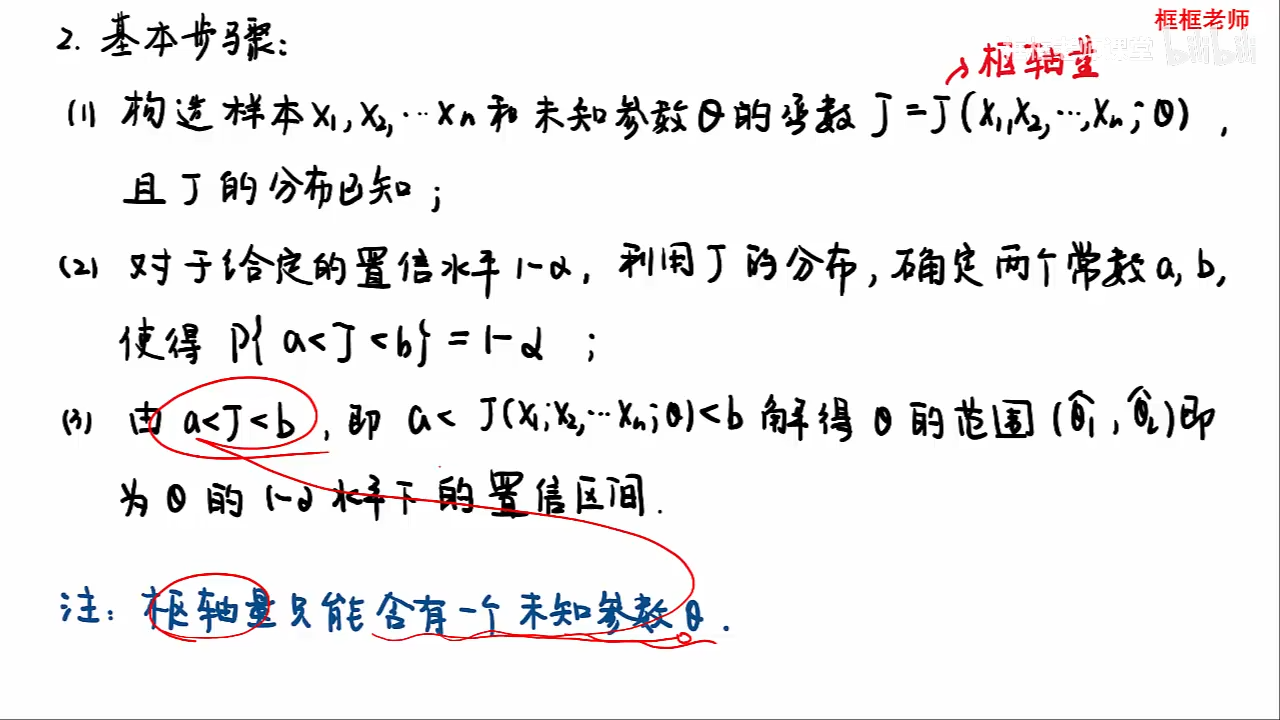 框框老师
2. 基本步骤:
枢轴量
(1) 构造样本 X1, X2, … Xn 和未知参数 θ 的函数 J = J(X1, X2, …, Xn; θ),
且 J 的分布已知;
(2) 对于给定的置信水平 1-α, 利用 J 的分布, 确定两个常数 a, b,
使得 P{ a < J < b } = 1-α ;
(3) 由 a<J<b, 即 a < J(X1, X2, … Xn; θ) < b 解得 θ 的范围 (θ̂1, θ̂2) 即
为 θ 的 1-α 水平下的置信区间.
注: 枢轴量只能含有一个未知参数 θ.